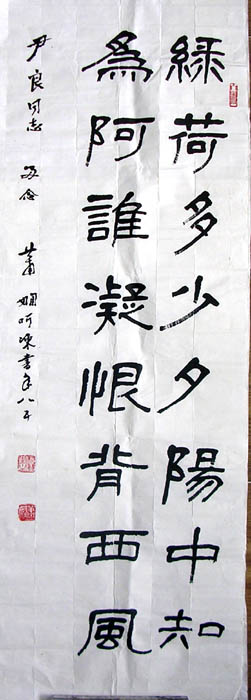 綠荷多少夕陽中知
為阿誰凝恨背西風
尹良同志 留念
蕭嫻呵凍書年八十